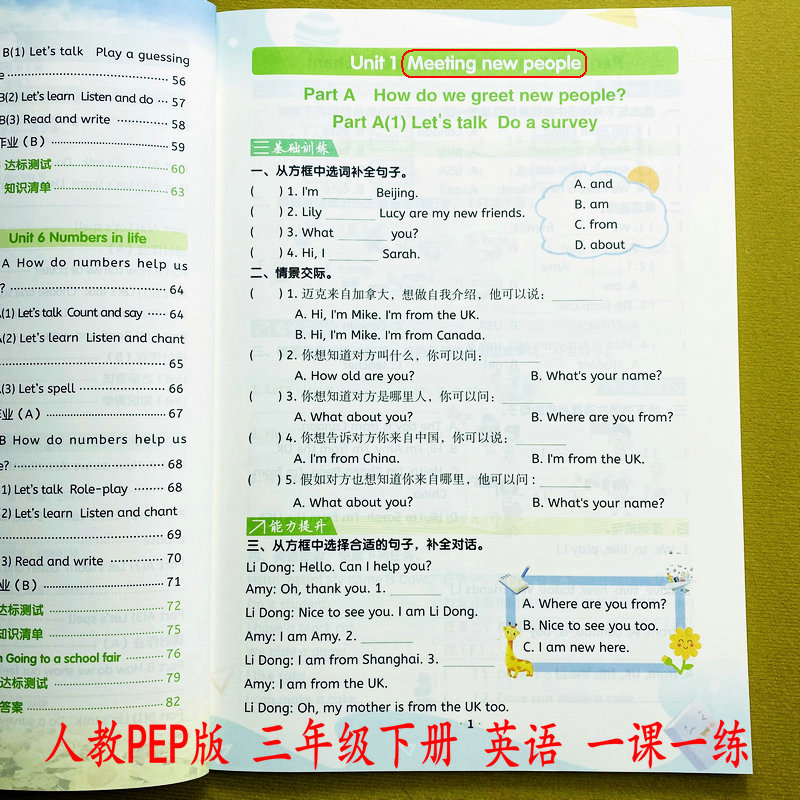 B(1) Let's talk Play a guessing
e 56
B(2) Let's learn Listen and do 57
B(3) Read and write 58
作业（B） 59
达标测试 60
知识清单 63
Unit 6 Numbers in life
A How do numbers help us
? 64
A(1) Let's talk Count and say 64
A(2) Let's learn Listen and chant
65
A(3) Let's spell 66
业（A） 67
B How do numbers help us
e? 68
1) Let's talk Role-play 68
2) Let's learn Listen and chant
69
3) Read and write 70
业（B） 71
达标测试 72
知识清单 75
Going to a school fair 76
达标测试 79
答案 82
Unit 1 Meeting new people
Part A How do we greet new people?
Part A(1) Let's talk Do a survey
基础训练
一、从方框中选词补全句子。
( ) 1. I'm ______ Beijing.
( ) 2. Lily ______ Lucy are my new friends.
( ) 3. What ______ you?
( ) 4. Hi, I ______ Sarah.
A. and
B. am
C. from
D. about
二、情景交际。
( ) 1. 迈克来自加拿大，想做自我介绍，他可以说：______
A. Hi, I'm Mike. I'm from the UK.
B. Hi, I'm Mike. I'm from Canada.
( ) 2. 你想知道对方叫什么，你可以问：______
A. How old are you? B. What's your name?
( ) 3. 你想知道对方是哪里人，你可以问：______
A. What about you? B. Where are you from?
( ) 4. 你想告诉对方你来自中国，你可以说：______
A. I'm from China. B. I'm from the UK.
( ) 5. 假如对方也想知道你来自哪里，他可以问：______
A. What about you? B. What's your name?
能力提升
三、从方框中选择合适的句子，补全对话。
Li Dong: Hello. Can I help you?
Amy: Oh, thank you. 1. ______
Li Dong: Nice to see you. I am Li Dong.
Amy: I am Amy. 2. ______
Li Dong: I am from Shanghai. 3. ______
Amy: I am from the UK.
Li Dong: Oh, my mother is from the UK too.
A. Where are you from?
B. Nice to see you too.
C. I am new here.
· 1 ·
人教PEP版 三年级下册 英语 一课一练